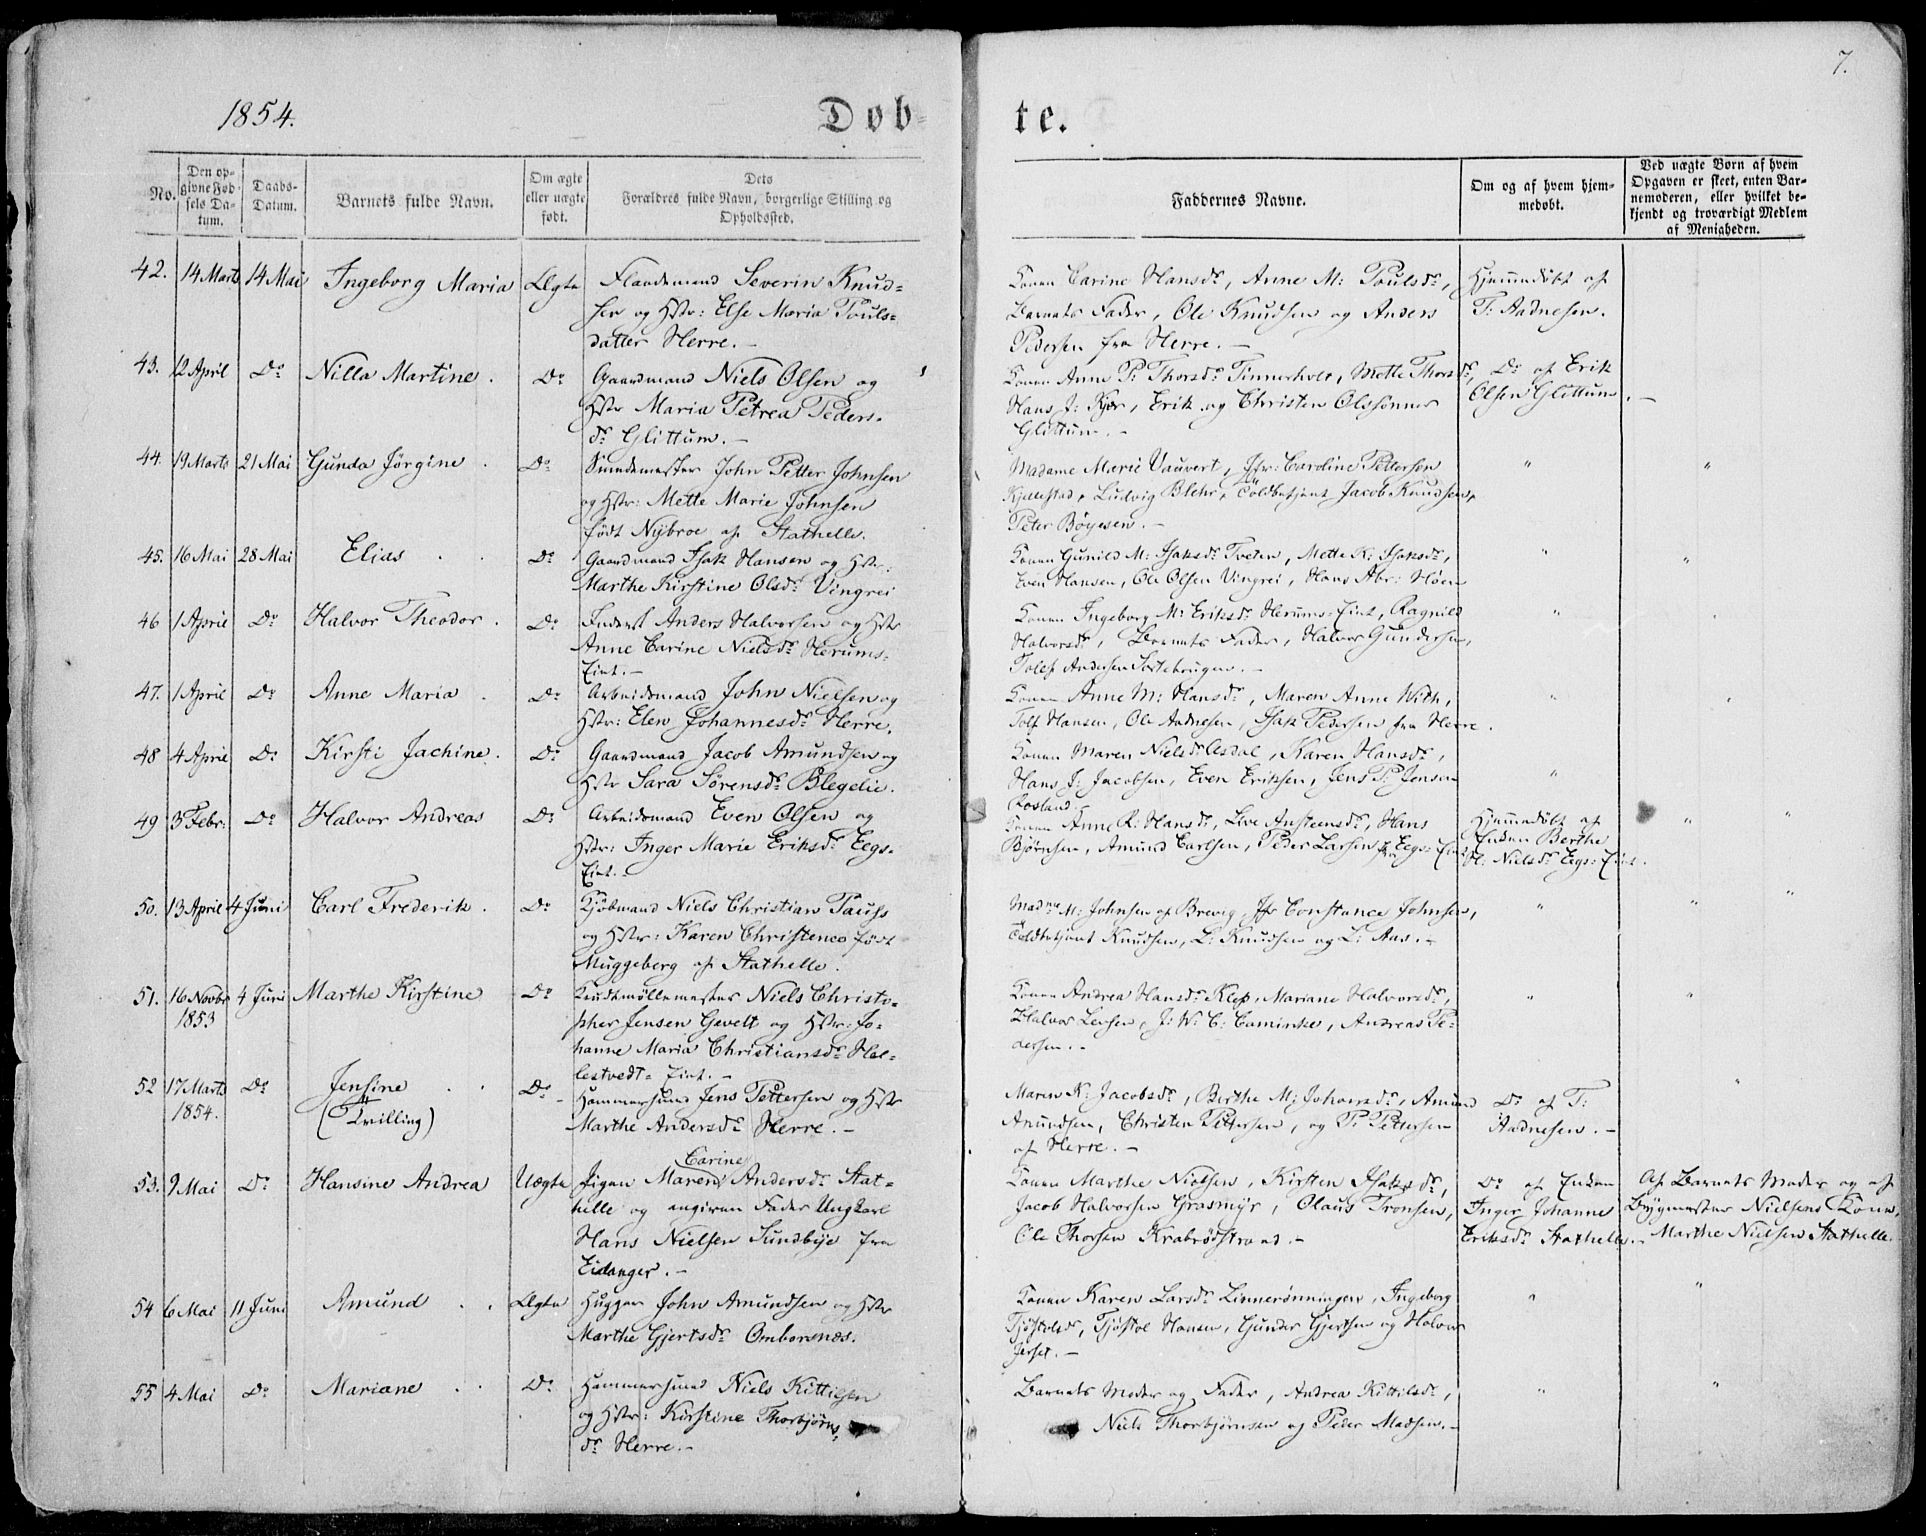 7.
1854.
Døb-
te.
No.
Den op-
givne Fød-
sels Da-
tum.
Daabs-
Datum.
Barnets fulde Navn.
Om ægte
eller uægte
født.
Dets
Forældres fulde Navn, borgerlige Stilling og
Opholdssted.
Faddernes Navne.
Om og af hvem hjem-
medøbt.
Ved uægte Børn af hvem
Opgaven er skeet, enten Bar-
nemoderen, eller hvilket be-
kjendt og troværdigt Medlem
af Menigheden.
42. 14 Marts 14 Mai Ingeborg Maria Ægte Severin Knud-
sen og Hstr: Else Maria Pouls-
datter Herre. -
Konen Carine Hansdr, Anne M: Poulsdr,
Barnets Fader, Ole Knudsen og Anders
Pedersen fra Herre. -
Hjemmedøbt af
T: Aadnesen.
43. 12 April Do Nilla Martine. Do Gaardmand Niels Olsen og
Hstr Maria Petrea Peders-
dr Glittum. -
Konen Anne P: Thorsdr Tinnerholt, Mette Thorsdr,
Hans J: Kjør, Erik og Christen Olssønner
Glittum. -
Do af Erik
Olsen Glittum. -
44. 19 Marts 21 Mai Gunda Jørgine. Do Smedemester John Petter Johnsen
og Hstr: Mette Marie Johnsen
født Nybroe af Stathelle.
Madame Marie Vauvert, Jfr: Caroline Pettersen
Kjellestad, Ludvig Blehr, Toldbetjent Jacob Knudsen,
Peter Bøyesen. -
" "
45. 16 Mai 28 Mai Elias . . Do Gaardmand Isak Hansen og Hstr:
Marthe Kirstine Olsdr Vingrei
Konen Gunild M: Isaksdr Tveten, Mette K: Isaksdr,
Even Hansen, Ole Olsen Vingrei, Hans Abr: Høen
" "
46 1 April Do Halvor Theodor. Do Inderst Anders Halvorsen og Hstr
Anne Carine Nielsdr Herums-
Eiet. -
Konen Ingeborg M: Eriksdr Herums-Eiet, Ragnild
Halvorsdr, Barnets Fader, Halvor Gundersen,
Tolef Andersen
"
47. 1 April Do Anne Maria . Do Arbeidsmand John Nielsen og
Hstr: Elen Johannesdr Herre.
Konen Anne M: Hansdr, Maren Anne With,
Tolf Hansen, Ole Aadnesen, Isak Pedersen fra Herre.
" "
48 4 April Do Kirsti Jachine. Do Gaardmand Jacob Amundsen og
Hstr Sara Sørensdr Blegelie.
Konen Maren Nielsdr Asdal, Karen Hansdr,
Hans J: Jacobsen, Even Eriksen, Jens P: Jensen
Rosland.
"
49 3 Febr: Do Halvor Andreas Do Arbeidsmand Even Olsen og
Hstr: Inger Marie Eriksdr Eegs-
Eiet. -
Konen Anne K: Hansdr, Live Ansteensdr, Hans
Bjørnsen, Amund Carlsen, Peder Larsen fra Eegs-Eiet
Hjemmedøbt af
Enken Berthe
Nielsdr Eegs-Eiet.
" "
50. 13 April 4 Juni Carl Frederik. Do Kjøbmand Niels Christian Pauss
og Hstr: Karen Christence født
Muggeberg af Stathelle.
Madme M: Johnsen af Brevig, Jfr Constance Johnsen,
Toldbetjent Knudsen, L: Knudsen og L: Aas. -
" " "
51. 16 Novbr
1853 4 Juni Marthe Kirstine Do Niels Christo-
pher Jensen Gevelt og Hstr: Jo-
hanne Maria Christiansdr Hel-
lestvedt-Eiet. -
Konen Andrea Hansdr Klep, Mariane Halvorsdr,
Halvor Larsen, J: W: C: Caminke, Andreas Pe-
dersen. -
" "
52 17 Marts
1854. Do Jensine . .
(Tvilling) Do - Hammersmed Jens Pettersen og Hstr
Marthe Andersdr Herre. -
Maren K: Jacobsdr, Berthe M: Johansdr, Amund
Amundsen, Christen Pettersen, og P: Pettersen
af Herre. -
Do af T:
Aadnesen. -
"
53. 9 Mai Do Hansine Andrea Uægte Pigen Maren Carine Andersdr Stat-
helle og angiven Fader Ungkarl
Hans Nielsen Sundbye fra
Eidanger. -
Konen Marthe Nielsen, Kirsten Isaksdr,
Jacob Halvorsen Grasmyr, Olaus Tronsen,
Ole Thorsen Krabrødstrand. -
Do af Enken
Inger Johanne
Eriksdr Stathelle. -
Af Barnets Moder og af
Bygmester Nielsens Kone
Marthe Nielsen Stathelle.
54 6 Mai 11 Juni Amund . . Ægte Hugger John Amundsen og Hstr
Marthe Gjertsdr Omborsnæs.
Konen Karen Larsdr Linnerønningen, Ingeborg
Tjøstolsdr, Tjøstol Hansen, Gunder Gjertsen og Halvor
Jerset. -
" "
55 4 Mai Do Mariane . . Do Hammersmed Niels Kittilsen
og Hstr: Kirstine Thorbjørns-
dr Herre. -
Barnets Moder og Fader, Andrea Kittilsdr,
Niels Thorbjørnsen og Peder Madsen. -
" "